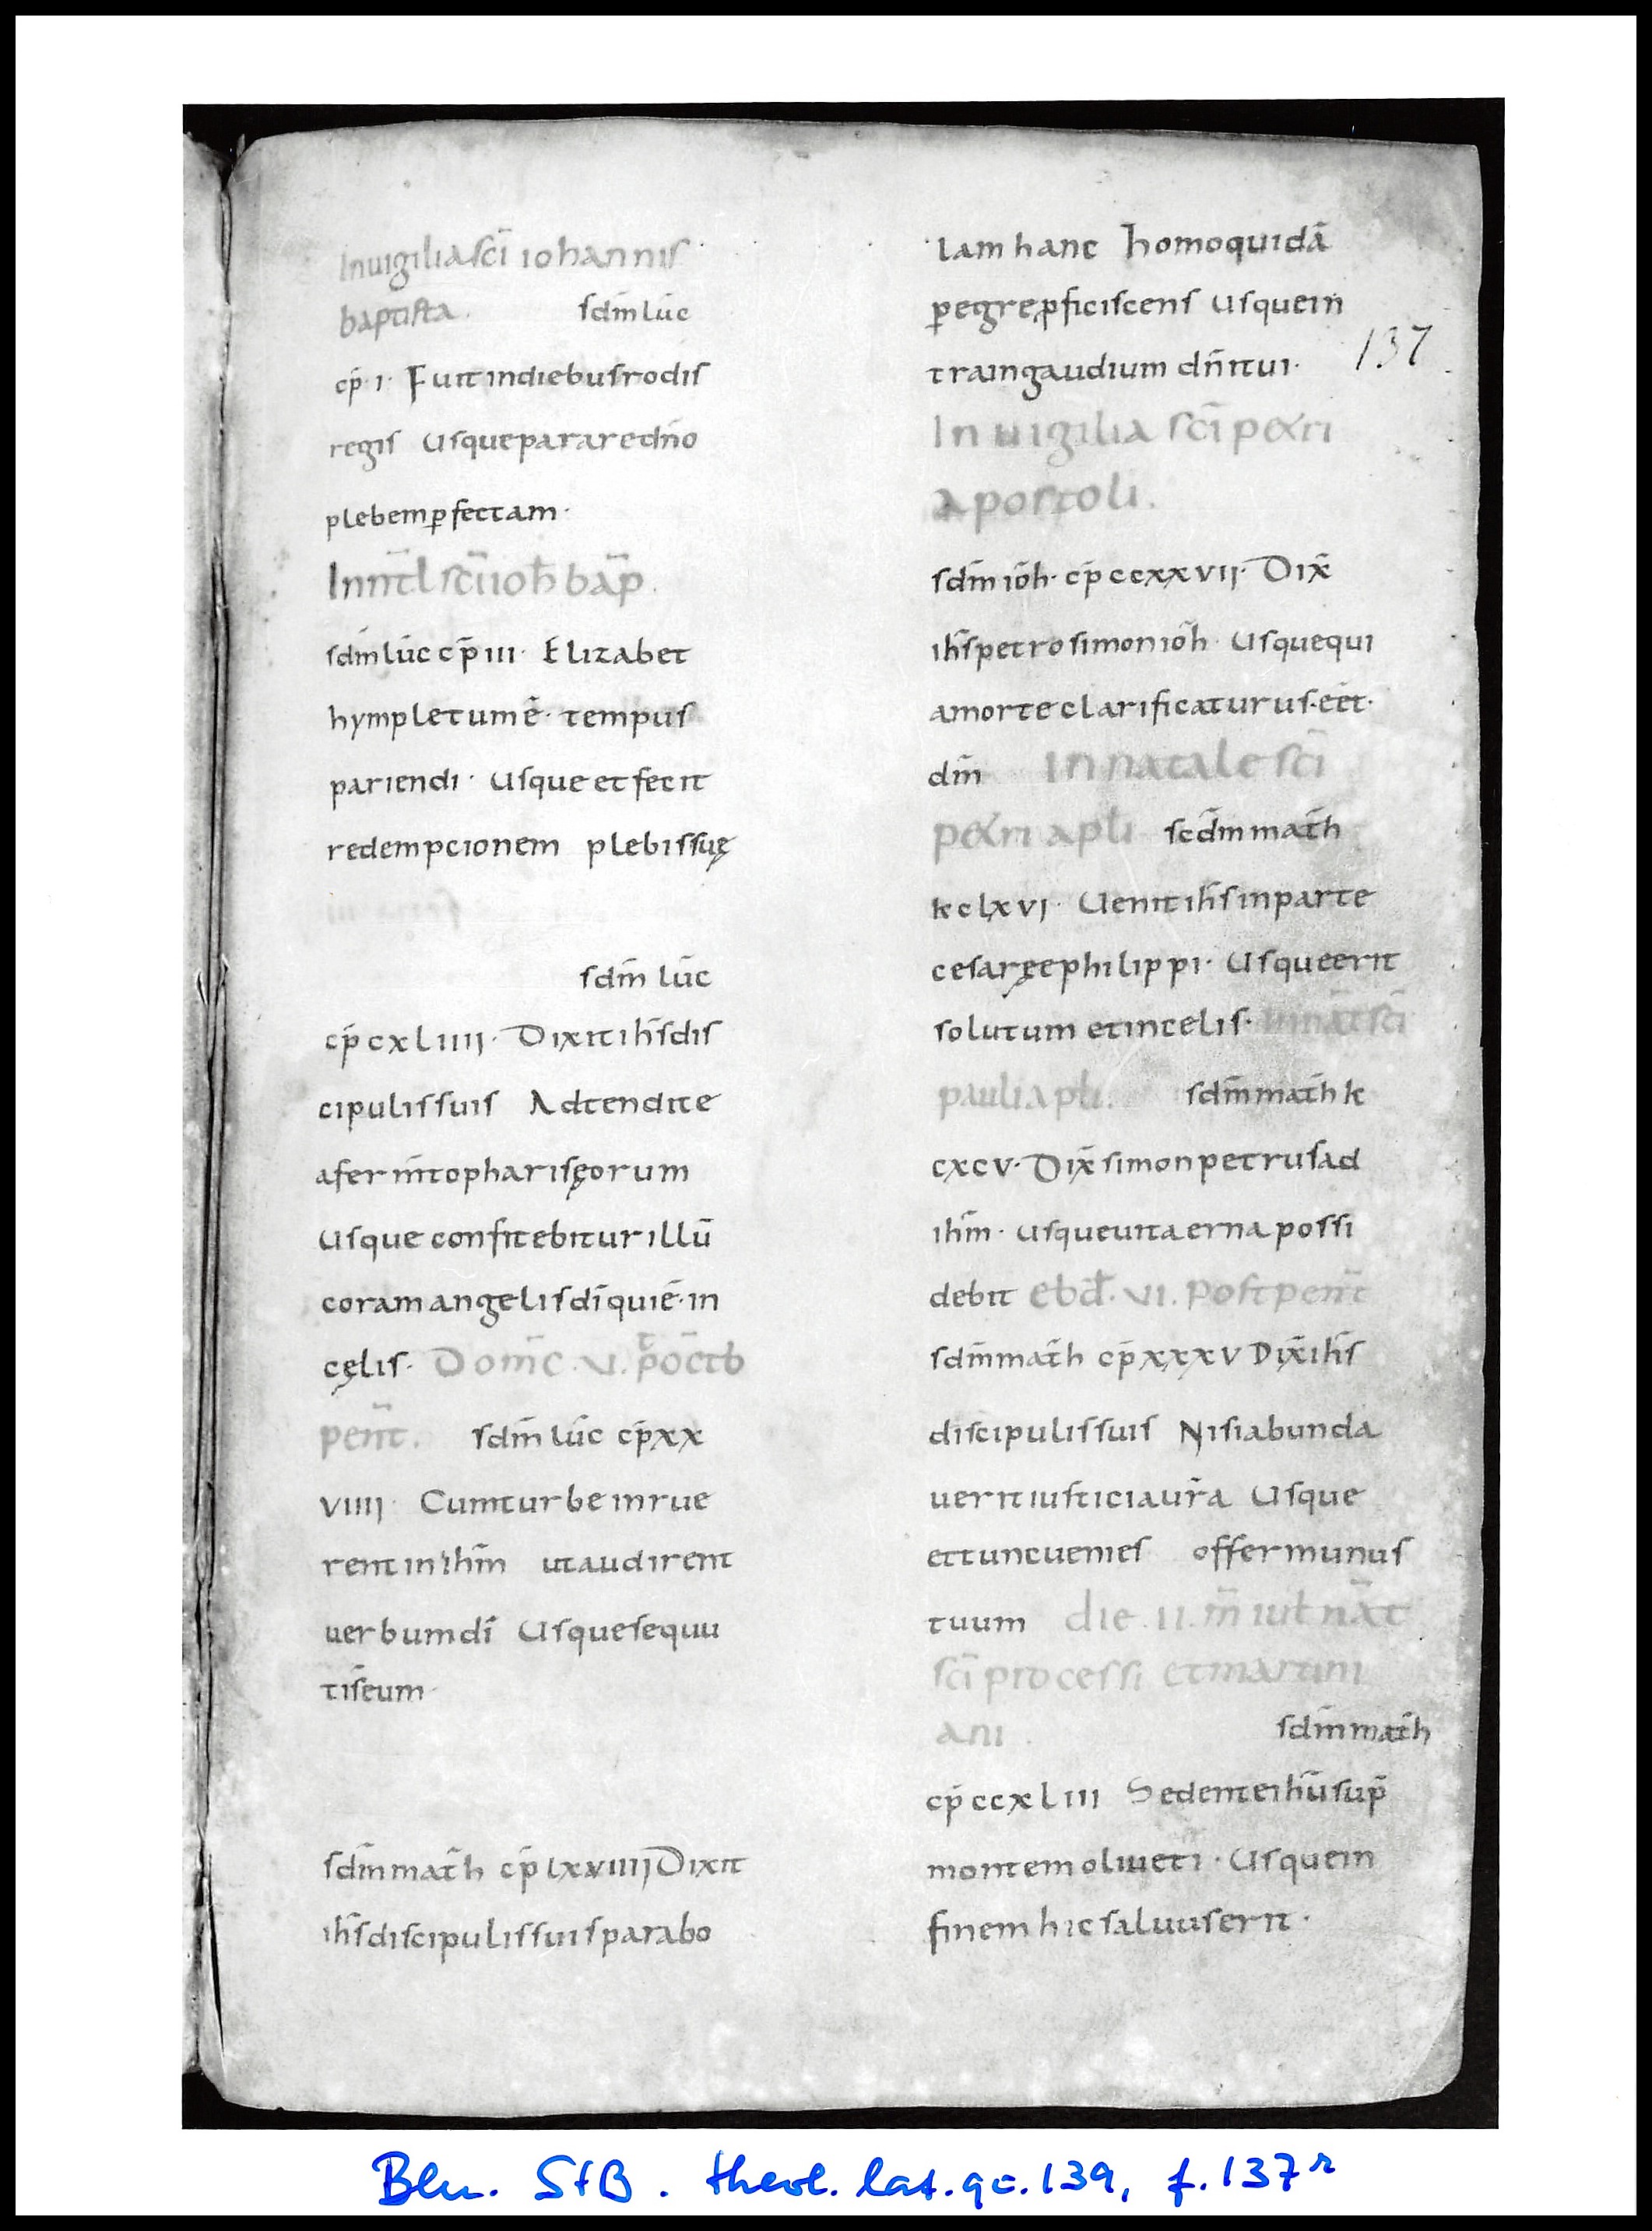 In uigilia sc̄i iohannis
baptista. sdm̄ luc̄
cp̄ · i · Fuit in diebus rodis
regis Usque parare dn̄o
plebem ꝑfectam ·
In nt̄l sc̄i ioħ bap̄.
sdm̄ luc̄ cp̄ iii · Elizabet
hympletum ē · tempus
pariendi · Usque et fecit
redempcionem plebis suę
sdm̄ luc̄
cp̄ cxliiij · Dixit ih̄s dis
cipulis suis Adtendite
a fermto pharisęorum
Usque confitebitur illū
coram angelis dī qui ē · in
cęlis · Dom̄c · v · p̄ oct̄b
pent̄. sdm̄ luc̄ cp̄ xx
viiij · Cum turbe inrue
rent in ih̄m ut audirent
uerbum dī Usque sequu
ti s̄ eum ·
sdm̄ matħ cp̄ lxxviiij Dixit
ih̄s discipulis suis parabo
lam hanc homo quidā
ꝑegre ꝓficiscens Usque in
tra in gaudium dn̄i tui ·
137
In uigilia sc̄i petri
apostoli.
sdm̄ ioħ · cp̄ ccxxvij · Dix̄
ih̄s petro simon ioħ · Usque qui
a morte clarificaturus · eēt ·
dm̄ In natale sc̄i
petri apłi scdm̄ matħ
k clxvj · Uenit ih̄s in parte
cesaręe philippi · Usque erit
solutum et in celis · In nāt sc̄i
pauli apłi. sdm̄ matħ k
cxcv · Dix̄ simon petrus ad
ih̄m · usque uita erna possi
debit ebđ · vi · post pent̄
sdm̄ matħ cp̄ xxxv Dix̄ ih̄s
discipulis suis Nisi abunda
uerit iusticia ur̄a Usque
et tunc uenies offer munus
tuum die · ii · m̄ iuł nāt
sc̄i processi et martini
ani · sdm̄ matħ
cp̄ ccxliii Sedente ihū sup̄
montem oliueti · Usque in
finem hic saluus erit ·
Bln. StB. theol. lat. qu. 139, f. 137r